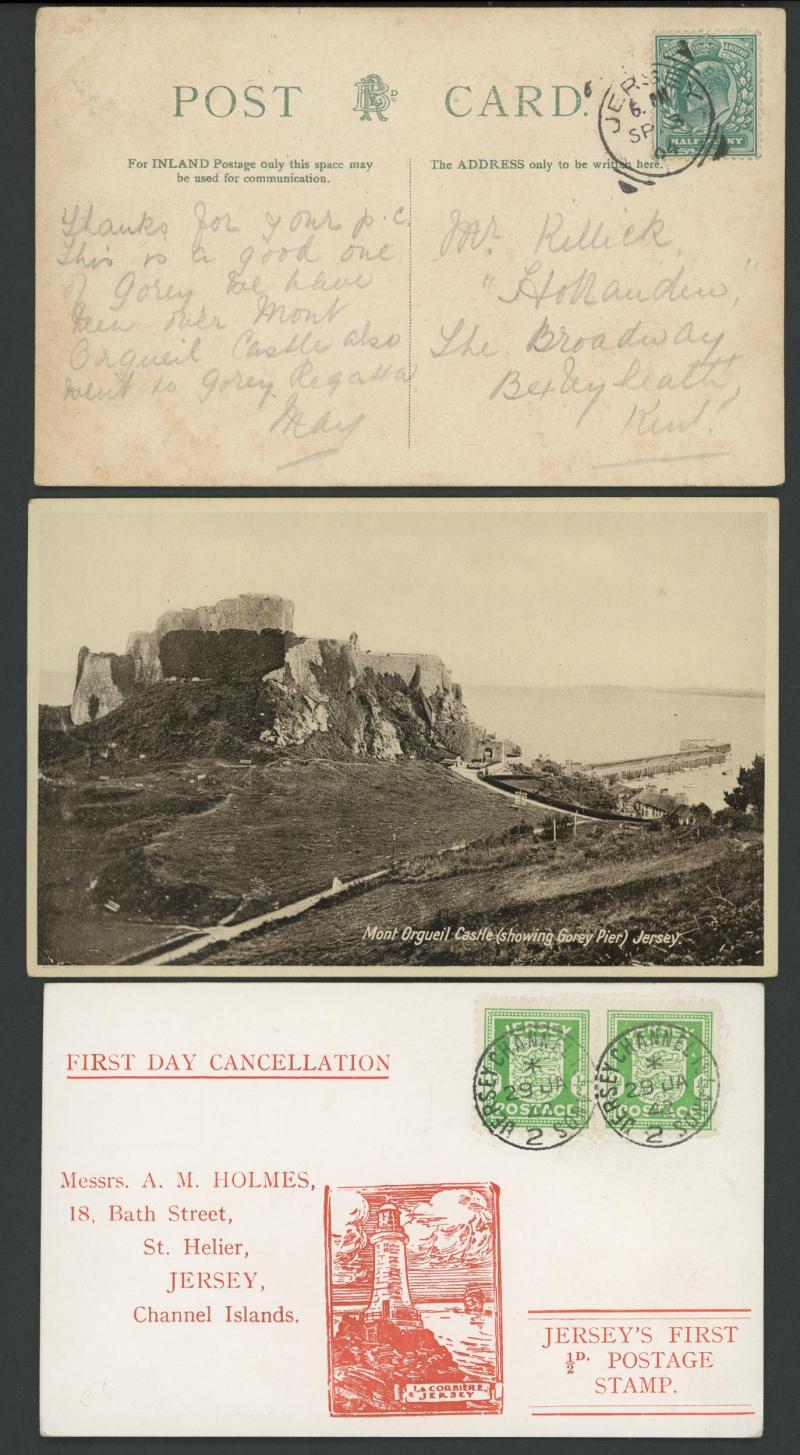 POST CARD.
For INLAND Postage only this space may
be used for communication.
The ADDRESS only to be written here.
JERSEY
SP
04
HALFPENNY
Thanks for your p.c.
This is a good one
of Gorey. We have
been over Mont
Orgueil Castle also
went to Gorey Regatta.
May
Mr. Killick,
"Hollanden,"
The Broadway
Bexleyheath,
Kent.
Mont Orgueil Castle (showing Gorey Pier) Jersey.
FIRST DAY CANCELLATION
JERSEY
POSTAGE
JERSEY CHANNEL
29 JA
42
2
JERSEY
POSTAGE
JERSEY CHANNEL
29 JA
42
2
Messrs. A. M. HOLMES,
18, Bath Street,
St. Helier,
JERSEY,
Channel Islands.
LA CORBIERE,
JERSEY
JERSEY'S FIRST
½D. POSTAGE
STAMP.